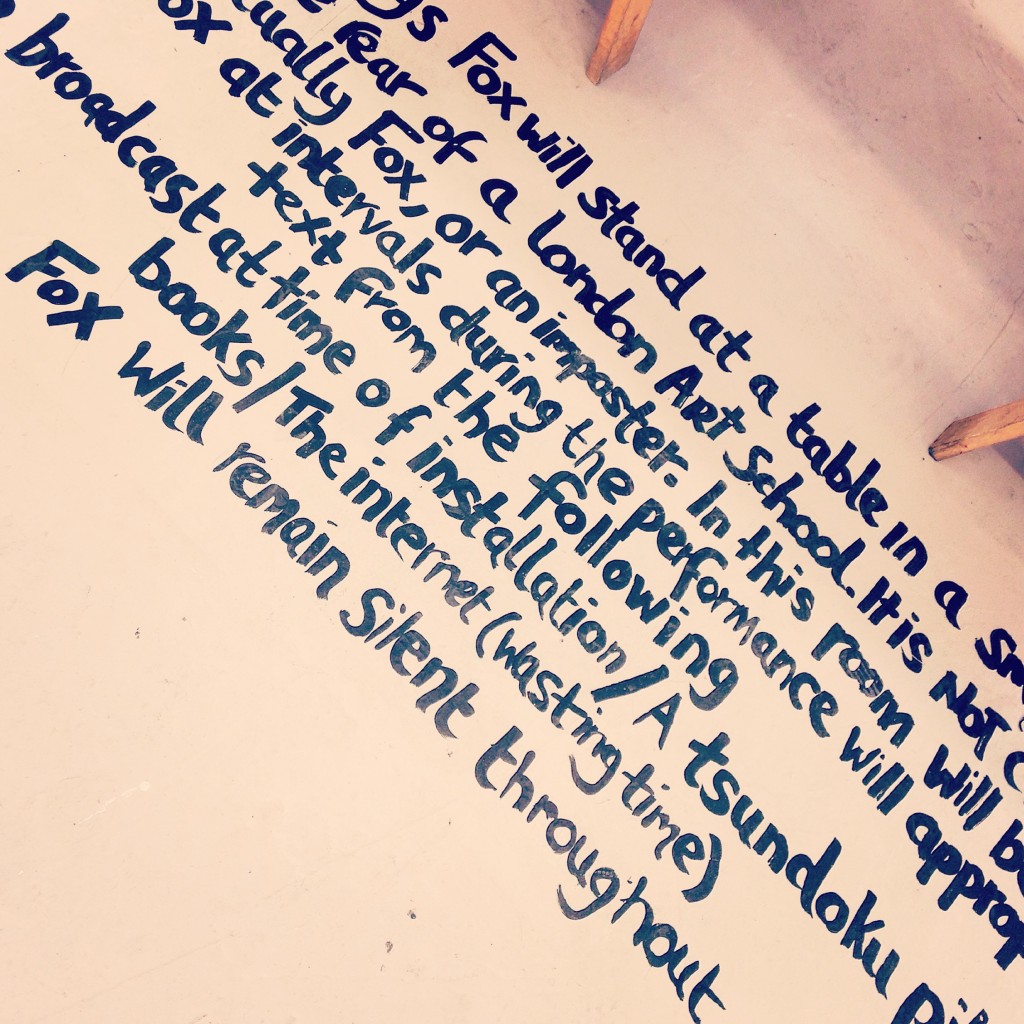 Fox will stand at a table in a
fear of a London Art School. It is NOT
tually Fox, or an imposter. In this room will be
ox at intervals during the performance will approp
text from the following
broadcast at time of installation / A tsundoku pi
books / The internet (wasting time)
Fox will remain silent throughout